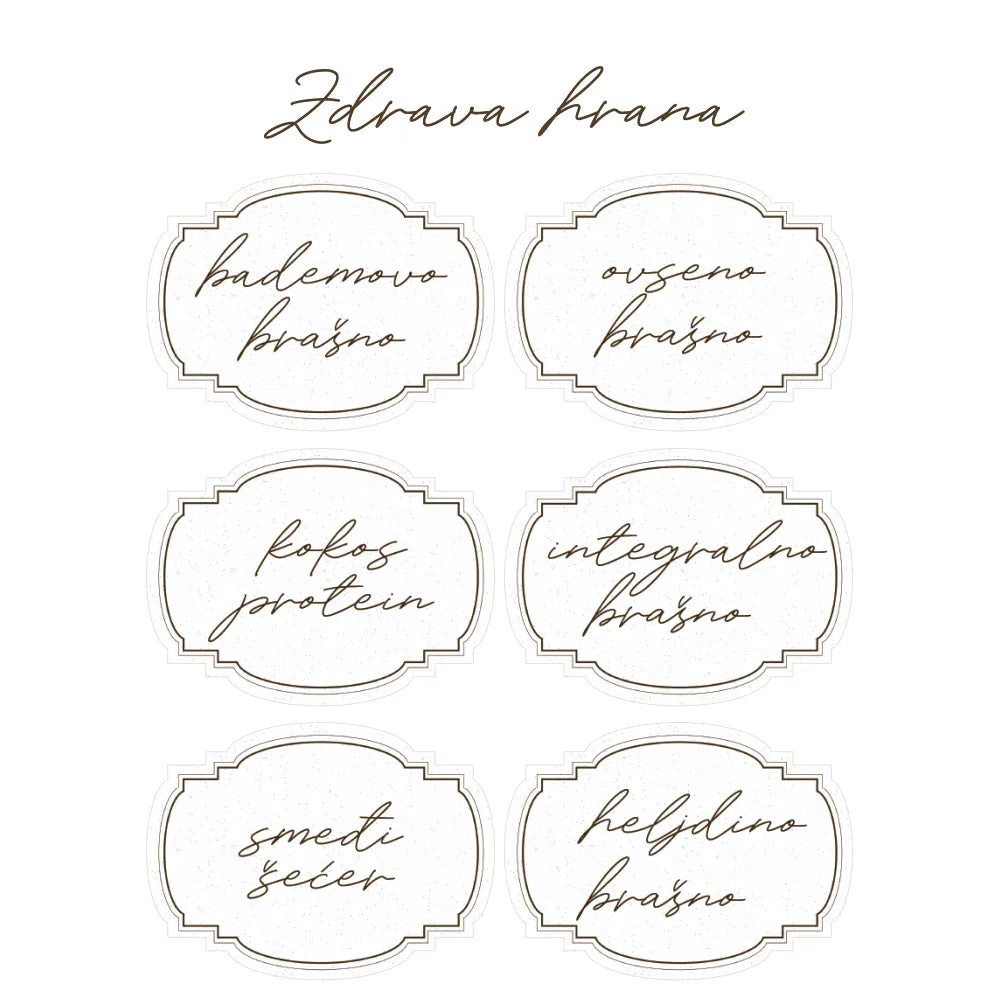 Zdrava hrana
bademovo
brašno
ovseno
brašno
kokos
protein
integralno
brašno
smeđi
šećer
heljdino
brašno